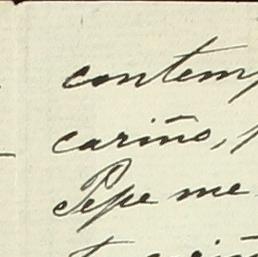 contemp
cariño,
Pepe me